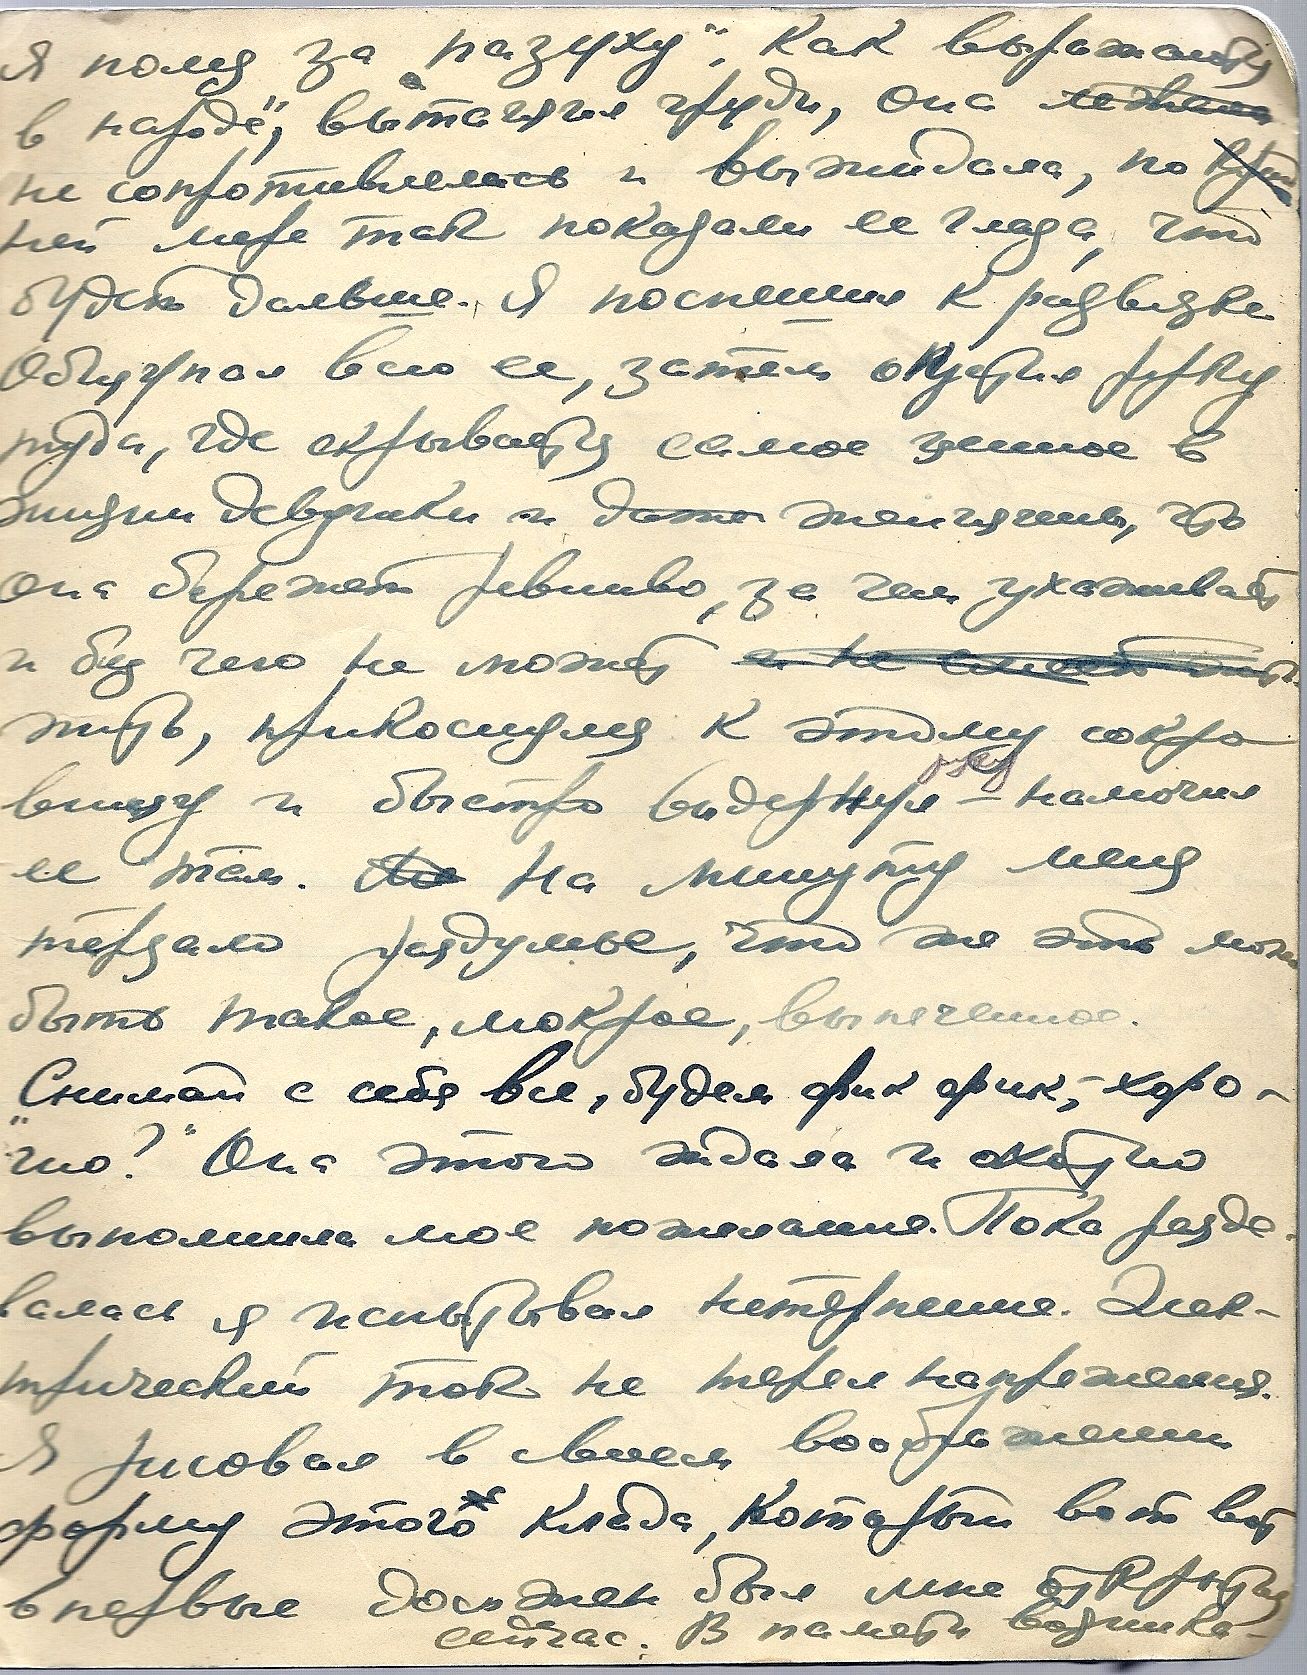 Я полез за "пазуху", как выражаются
в народе", вытащил груди, она
не сопротивлялась и выжидала, по
ней мере так показали ее глаза, что
будет дальше. Я поспешил к развязке
Общупал всю ее, затем опустил руку
туда, где скрывается самое ценное в
жизни девушки и даже женщины, что
она бережет ревниво, за чем ухаживает
и без чего не может
жить, прикоснулся к этому сокро
вищу и быстро выдернул руку – намочил
ее там. На минуту меня
терзало раздумье, что же это може
быть такое, мокрое,
"Снимай с себя все, будем фик фик, – хоро-
шо?" Она этого ждала и охотно
выполнила мое пожелание. Пока разде-
валась я испытывал нетерпение. Элек-
трический ток не терял напряжения.
Я рисовал в своем воображении
форму этого клада, который вот вот
впервые должен был мне открыться
сейчас. В памяти возника-